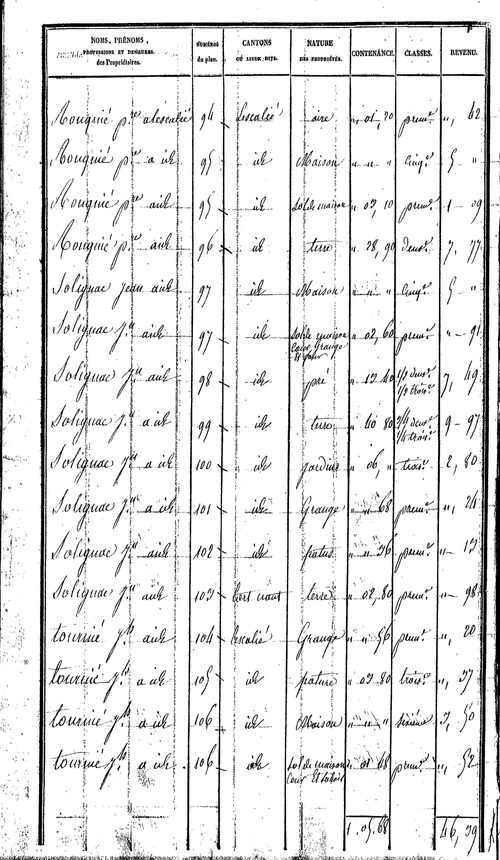 NOMS, PRÉNOMS, PROFESSIONS ET DEMEURES des Propriétaires. NUMÉROS du plan. CANTONS OU LIEUX DITS. NATURE DES PROPRIÉTÉS. CONTENANCE. CLASSES. REVENU.
Rouquié p.re alescalié 94 Lescalié aire " 01, 70 prem.e ", 62
Rouquié p.re a id 95 id Maison " " " cinq.e 5 "
Rouquié p.re aid 95 id sol de maison " 03, 10 prem.e 1 - 09
Rouquié p.re aid 96 id terre " 28, 90 deux.e 7, 77
Solignac Jean aid 97 id Maison " " " cinq.e 5 - "
Solignac J.n aid 97 id sol de maison " 02, 60 prem.e " - 91
Cour, Grange
et four
Solignac J.n aid 98 id pré " 13 40 1/2 deux.e 7, 49
1/2 trois.e
Solignac J.n aid 99 id terre " 40 80 3/4 deux.e 9 - 97
1/4 trois.e
Solignac J.n a id 100 id jardin " 06, " trois.e 2, 80
Solignac J.n a id 101 id Grange " " 68 prem.e ", 24
Solignac J.n aid 102 id patus " " 36 prem.e " - 13
Solignac J.n aid 103 terre " 02, 80 prem.e " - 98
tournié J.h aid 104 Lescalié Grange " " 56 prem.e ", 20
tournié J.h a id 105 id pature " 03 80 trois.e ", 37
tournié J.h a id 106 id Maison " " " sixième 3, 50
tournié J.h a id 106 id sol de maison " 01 48 prem.e ", 52
Cour et
1. 09. 68 46, 39